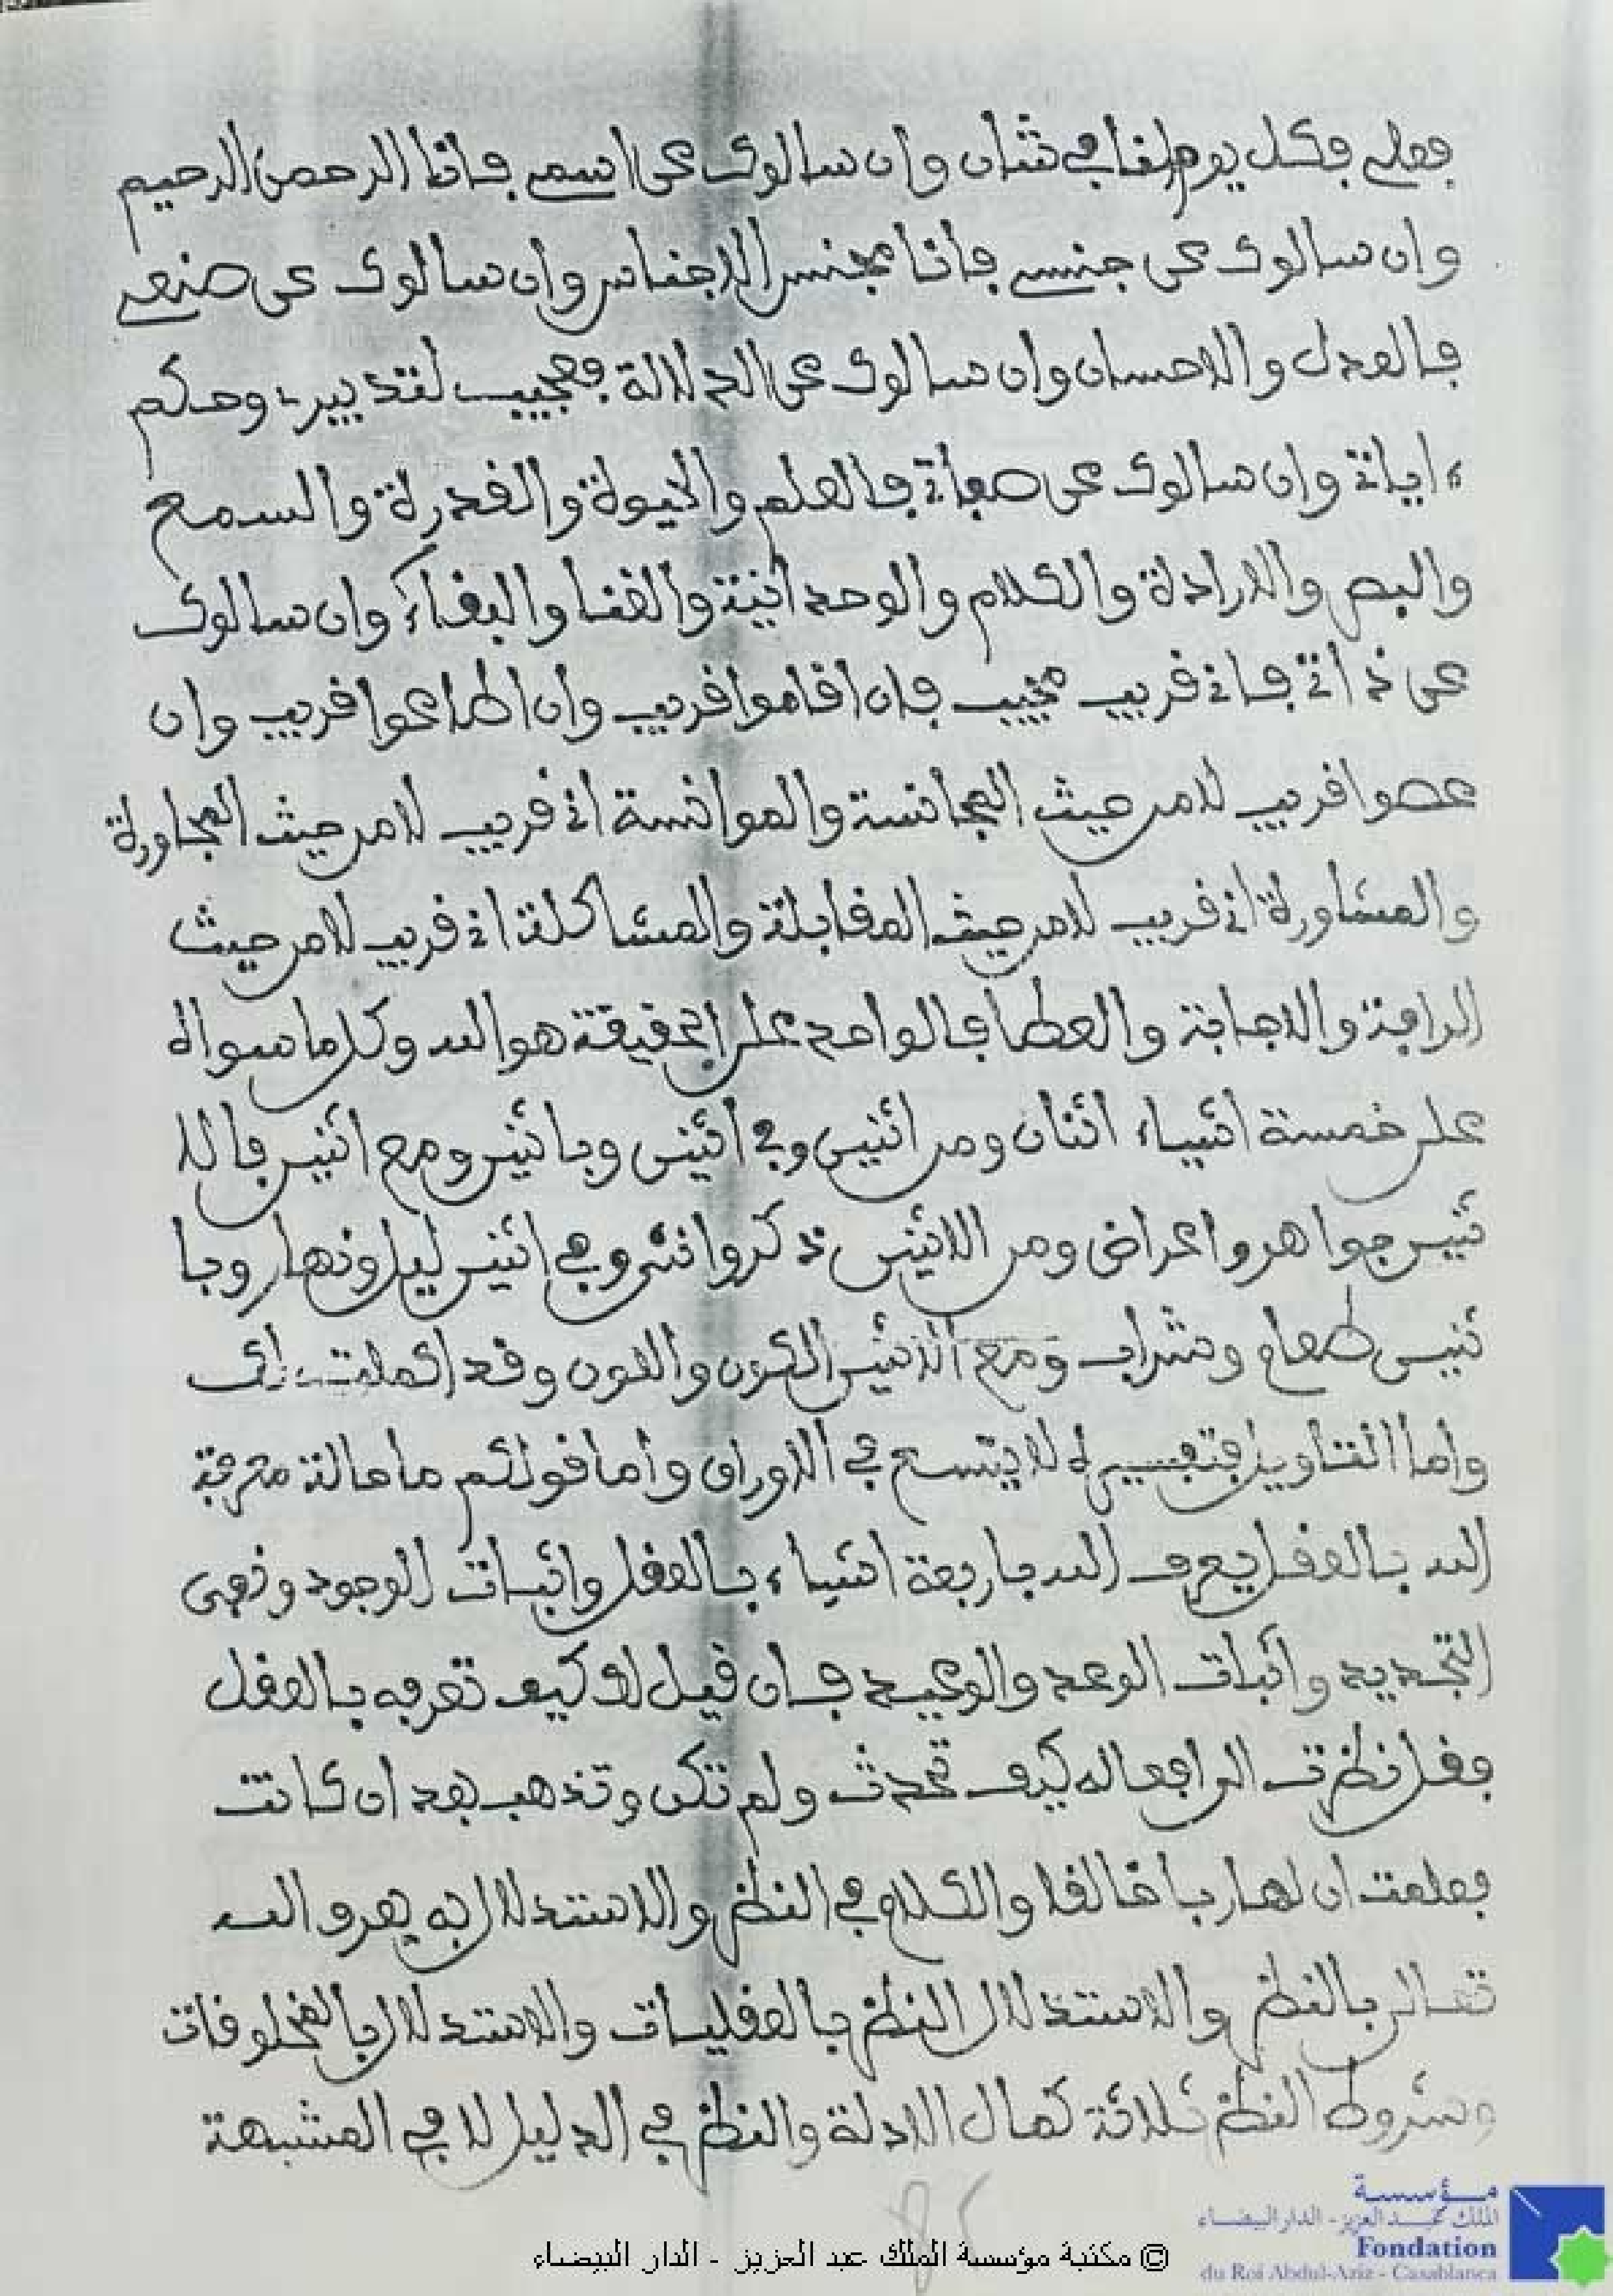 فعلي فكل يوم انا في شان وان سالوك عن اسمي فانا الرحمن الرحيم
وان سالوك عن جنسي فانا مجنس الاجناس وان سالوك عن صنعي
فالعدل والاحسان وان سالوك عن الدلالة فعجيب لتدبير وحكم
ءاياتي وان سالوك عن صفاتي فالعلم والحيوة والقدرة والسمع
والبصر والارادة والكلام والوحدانية والغنا والبقاء وان سالوك
عن ذاتي فاني قريب مجيب فان اقاموا قريب وان اطاعوا قريب وان
عصوا قريب لا من حيث المجانسة والموانسة اني قريب لا من حيث المجاورة
والمشاورة اني قريب لا من حيث المقابلة والمشاكلة اني قريب لا من حيث
الرافة والاجابة والعطا فالواحد على الحقيقة هو الله وكل ما سواه
على خمسة اشياء اثنان ومن اثنين وفي اثنين وباثنين ومع اثنين فالا
ثنين جواهر واعراض ومن الاثنين ذكر وانثى وفي اثنين ليل ونهار وبا
ثنين طعام وشراب ومع الاثنين الكون واللون وقد اكملت لك
واما التاويل فتفسيره لا يتسع في الاوراق واما قولكم ما حالة معرفة
الله بالعقل يعرف الله باربعة اشياء بالعقل واثبات الوجود ونفي
التحديد واثبات الوعد والوعيد فان قيل لك كيف تعرفه بالعقل
فقل نظرت الى افعاله كيف تحدث ولم تكن وتذهب بعد ان كانت
فعلمت ان لها ربا خالقا والكلام في النظر والاستدلال به يعرف الله
تعالى بالنظر والاستذلال النظر بالعقليات والاستدلال بالمخلوقات
وشروط النظر ثلاثة كمال الادلة والنظر في الدليل لا في المشبهة
مؤسسة
الملك عبد العزيز - الدار البيضاء
Fondation
du Roi Abdul-Aziz - Casablanca
© مكتبة مؤسسة الملك عبد العزيز - الدار البيضاء